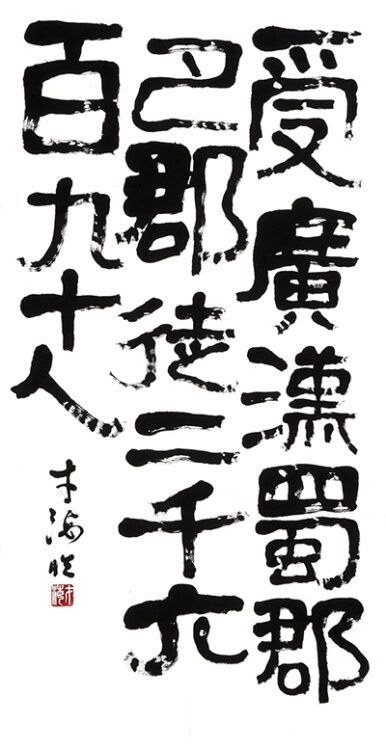 受廣漢蜀郡
巴郡徒二千六
百九十人
才海臨